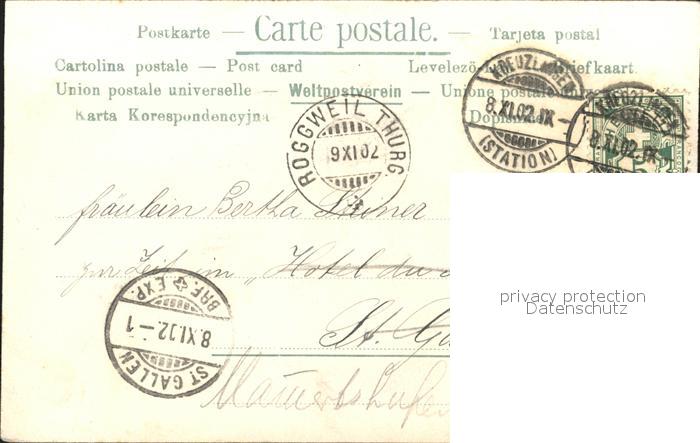 Postkarte — Carte postale. — Tarjeta postal
Cartolina postale — Post card Levelező- Briefkaart
Union postale universelle — Weltpostverein — Unione postale
Karta Korespondencyjna Dopisnice
KREUZLINGEN
8.XI.02.IX-
(STATION)
KREUZLINGEN
8.XI.02.IX
ROGGWEIL THURG.
9 XI 02
fräulein Bertha
zur Zeit im „Hotel du
St. Ga
BRF. EXP.
8.XI.02.-1
ST. GALLEN
privacy protection
Datenschutz